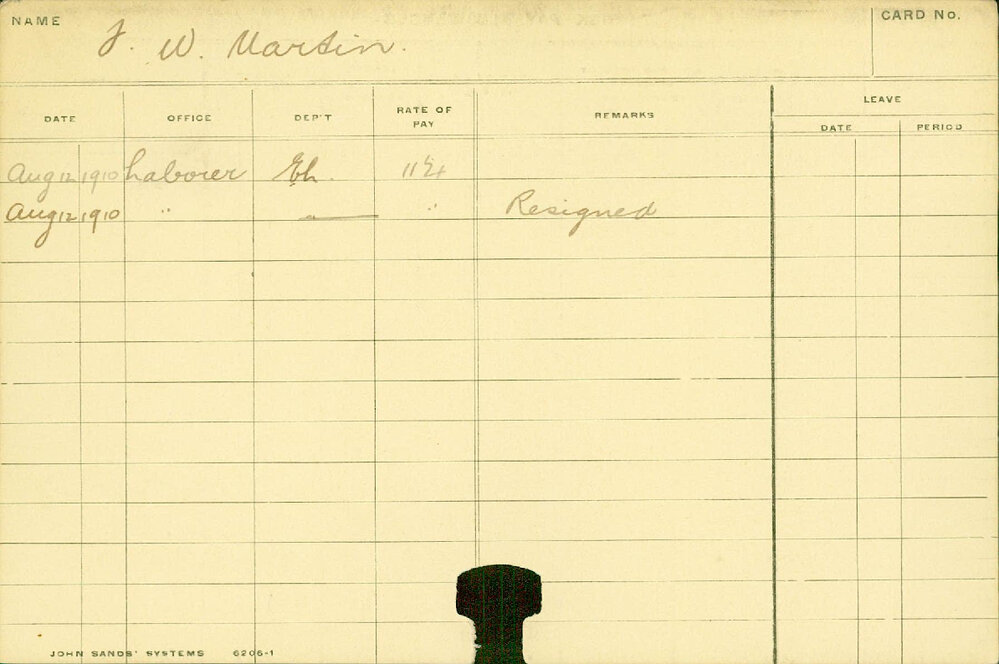 NAME
W. Martin.
CARD No.
DATE OFFICE DEP'T RATE OF PAY REMARKS LEAVE
DATE PERIOD
Aug 12 1910 Laborer
Aug 12 1910 " — " Resigned
JOHN SANDS' SYSTEMS 6206-1